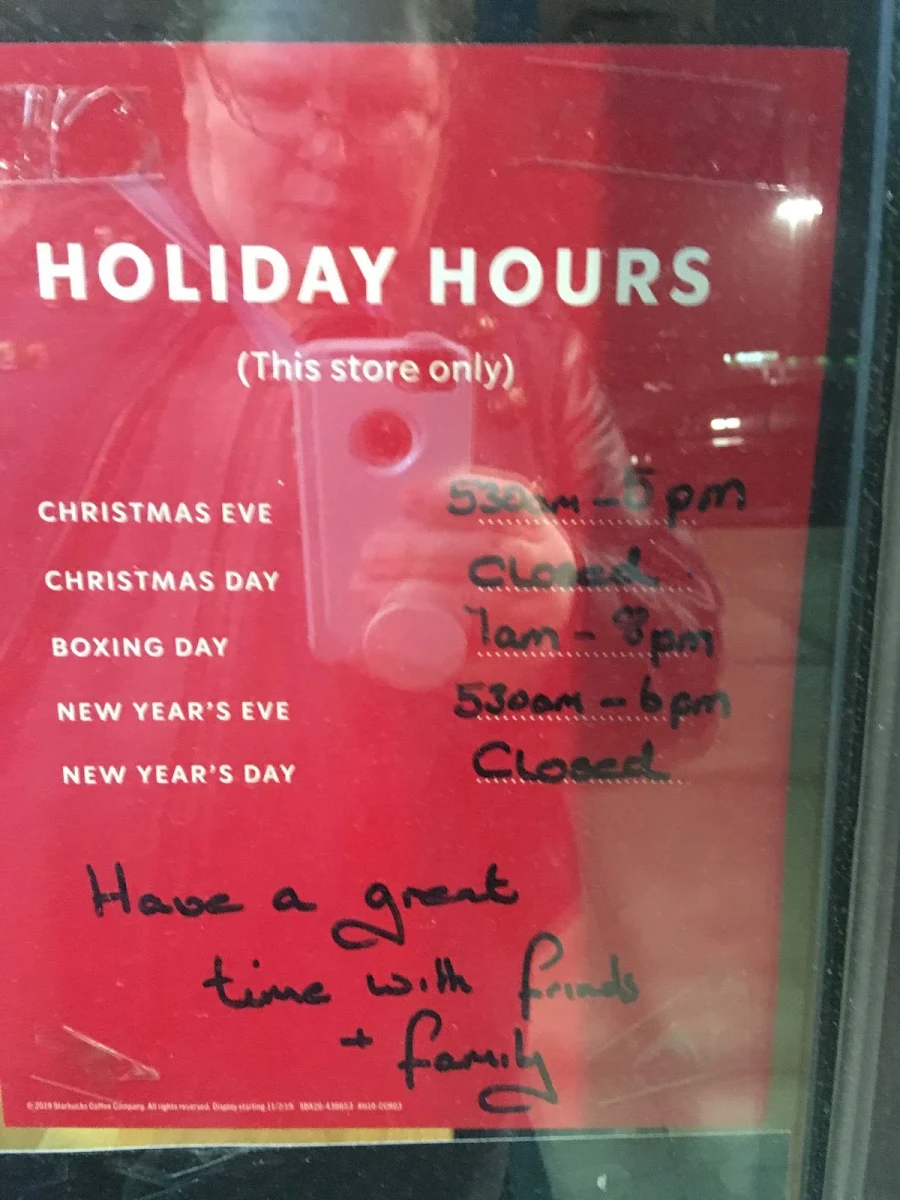 HOLIDAY HOURS
(This store only)
CHRISTMAS EVE 530am - 5 pm
CHRISTMAS DAY Closed
BOXING DAY 7am - 8pm
NEW YEAR'S EVE 530am - 6pm
NEW YEAR'S DAY Closed
Have a great
time with frinds
+ family
© 2019 Starbucks Coffee Company. All rights reserved. Display starting 11/7/19